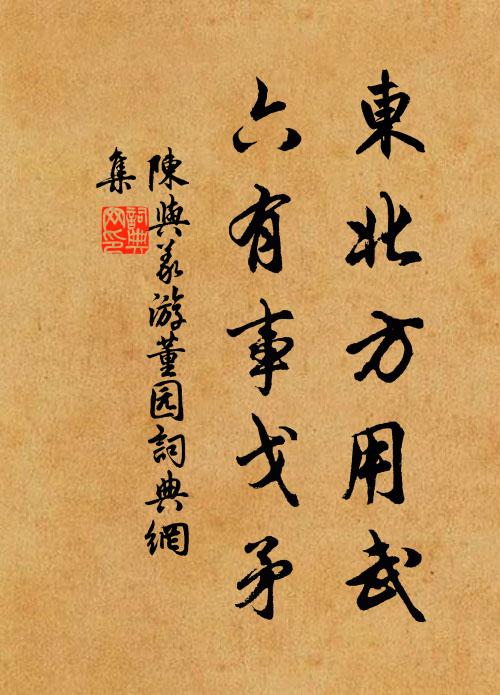 東北方用武
六有事戈矛
陳與義游董园詞典網
集
詞典
网印